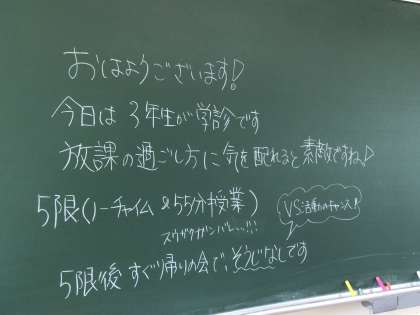 おはようございます!
今日は3年生が学診です
放課の過ごし方に気を配れると素敵ですね♪
5限(ノーチャイム&55分授業)
VS活動のチャンス!!
スウガクガンバレ…!!!
5限後すぐ帰りの会で、そうじなしです